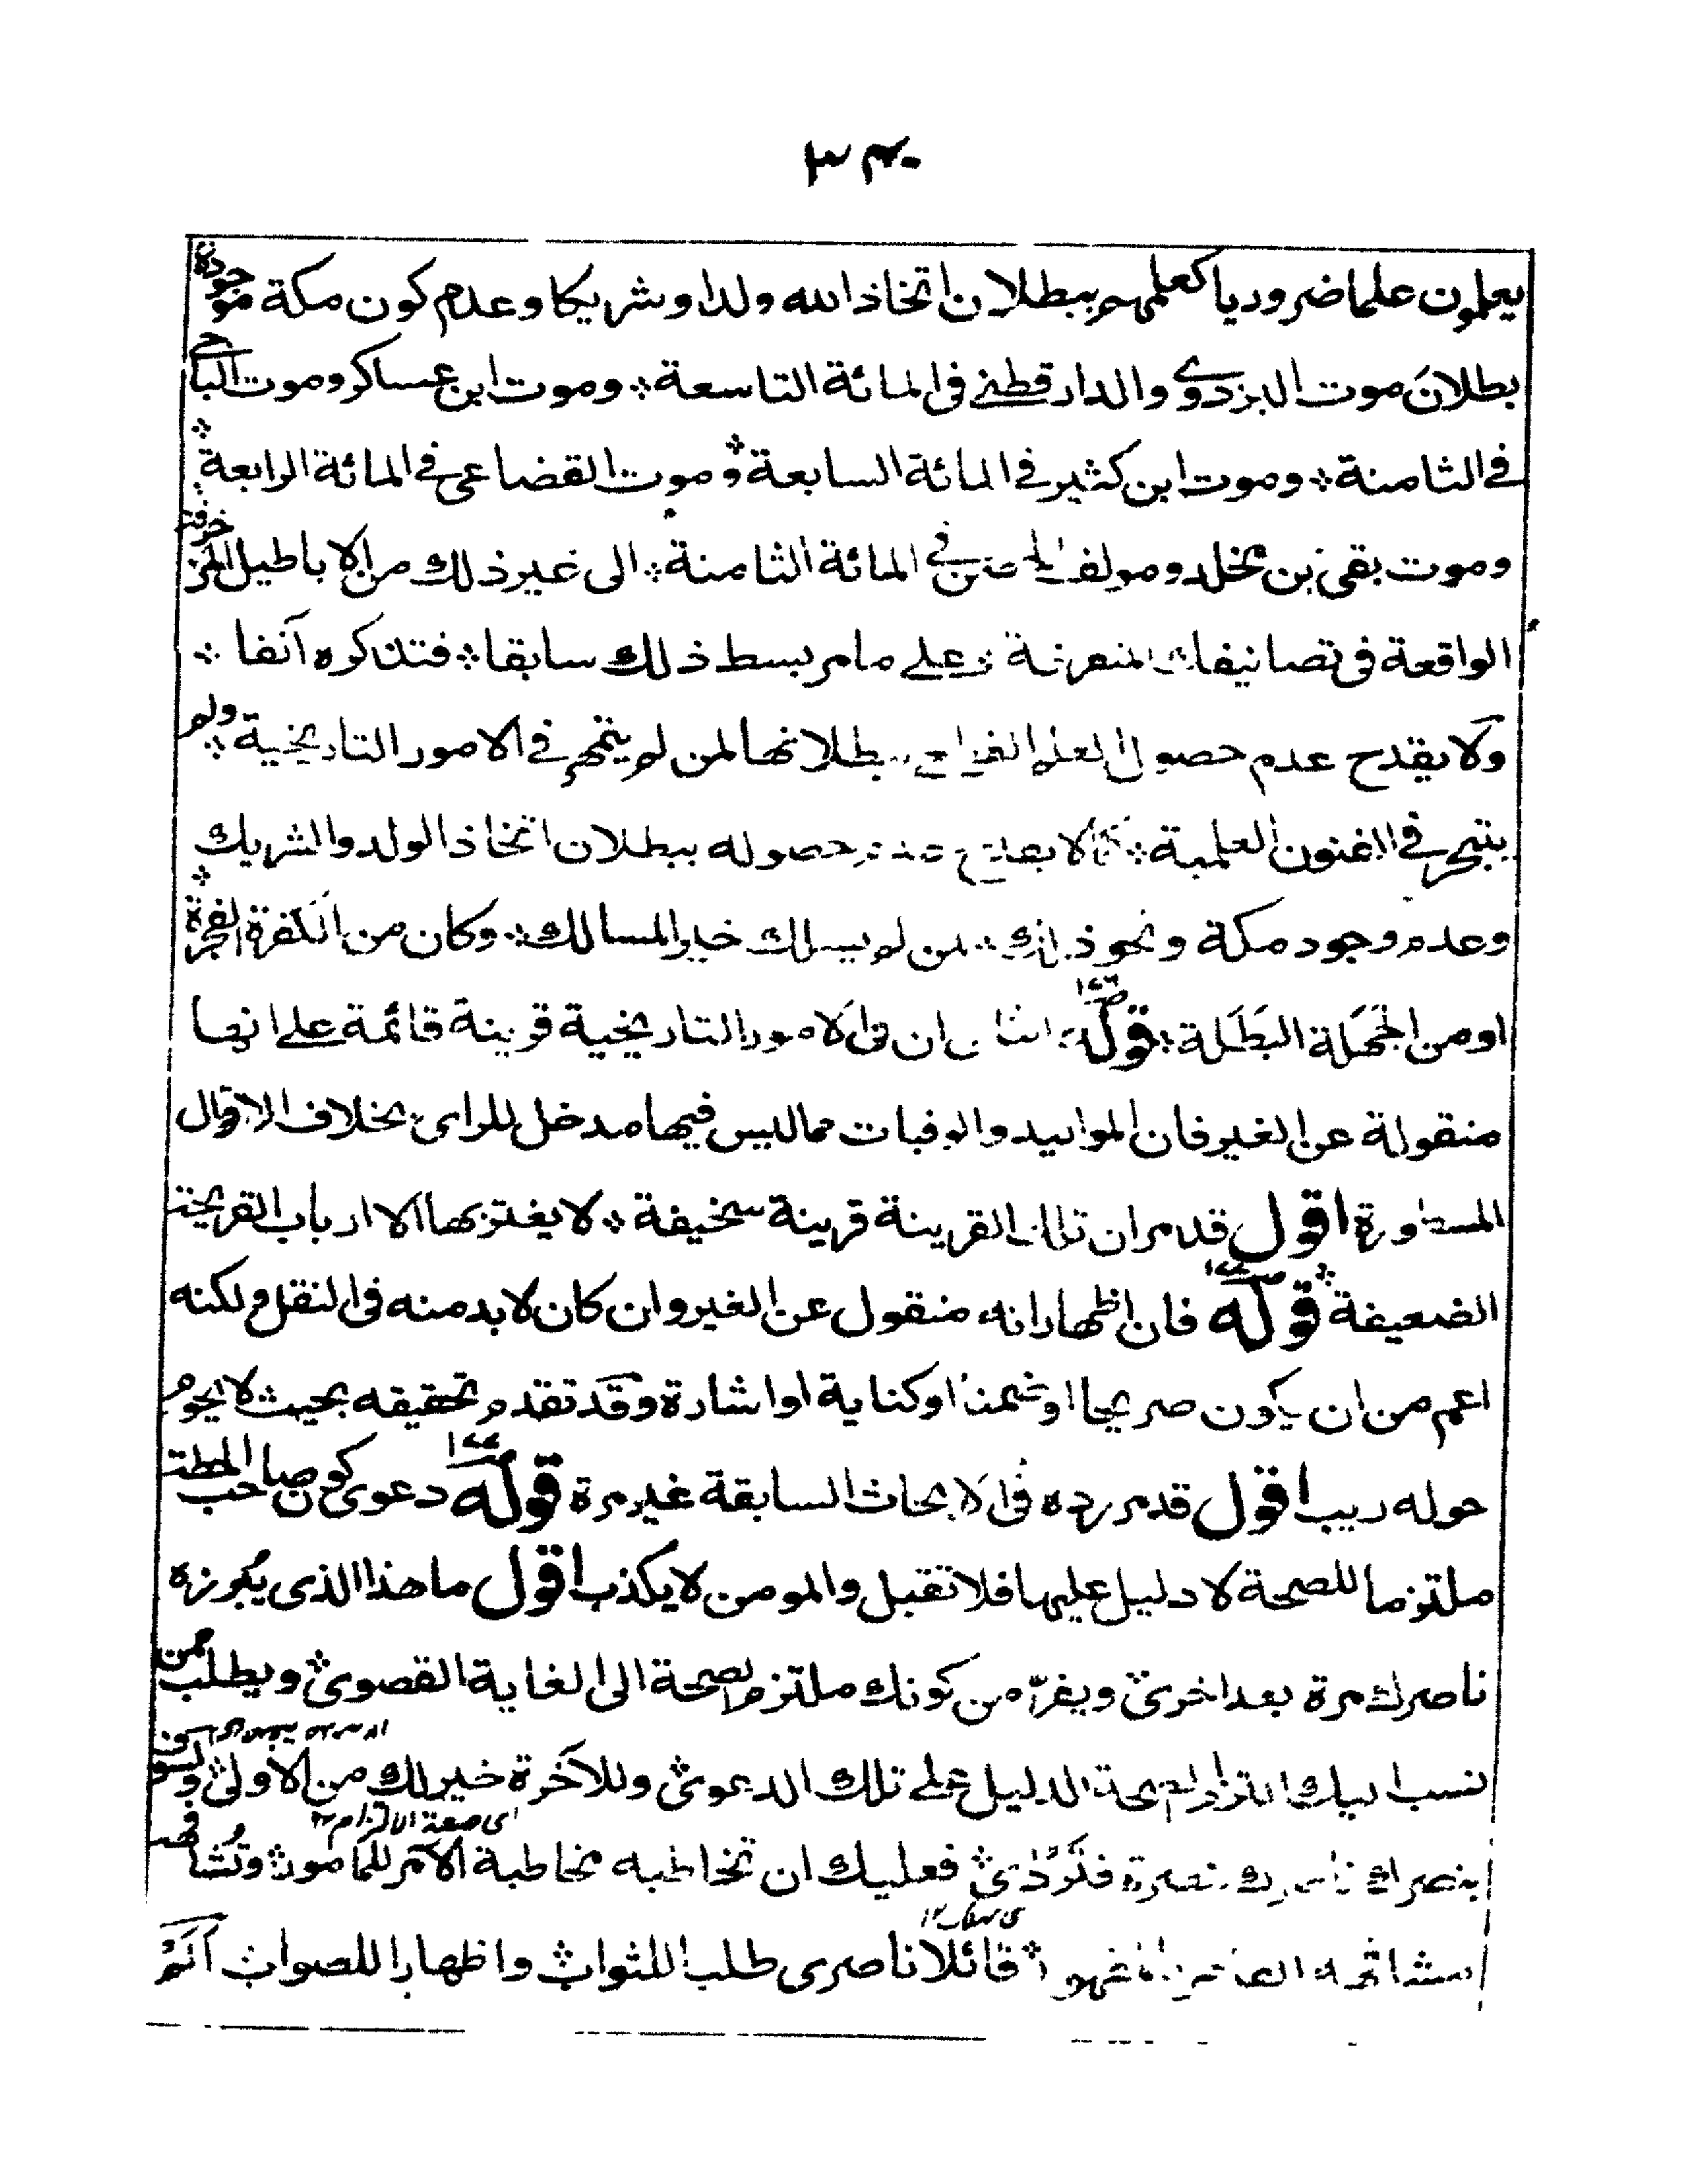 ٣٤٠
يعلمون علما ضروريا كعلمهم ببطلان اتخاذ الله ولدا وشريكا وعدم كون مكة موجودة
بطلان موت البزدوي والدارقطني في المائة التاسعة ؞ وموت ابن عساكر وموت الباجي
في الثامنة ؞ وموت ابن كثير في المائة السابعة ؞ وموت القضاعي في المائة الرابعة ؞
وموت بقي بن مخلد ومولف الحصن في المائة الثامنة ؞ الى غير ذلك من الاباطيل المزخرفة
الواقعة في تصانيفك المتفرقة ؞ على ما مر بسط ذلك سابقا ؞ فتذكره آنفا ؞
ولا يقدح عدم حصول العلم ببطلانها لمن لم يتمهر في الامور التاريخية ؞ ولم
يتبحر في الفنون العلمية ؞ كما لا يقدح عدم حصوله ببطلان اتخاذ الولد والشريك ؞
وعدم وجود مكة ونحو ذلك ؞ لمن لم يسلك خير المسالك ؞ وكان من الكفرة الفجرة
او من الجهلة البطلة ؞ قوله الثاني ان في الامور التاريخية قرينة قائمة على انها
منقولة عن الغير فان المواليد والوفيات مما ليس فيها مدخل للراى بخلاف الاقوال
المسطورة اقول قد مر ان تلك القرينة قرينة سخيفة ؞ لا يغتر بها الا ارباب القريحة
الضعيفة ؞ قوله ص١٧٧ فان اظهار انه منقول عن الغير وان كان لابد منه في النقل ولكنه
اعم من ان يكون صريحا او ضمنا او كناية او اشارة وقد تقدم تحقيقه بحيث لا يحوم
حوله ريب اقول قد مر رده في الابحاث السابقة غير مرة قوله ص١٧٧ دعوى كون صاحب الحطة
ملتزما للصحة لا دليل عليها فلا تقبل والمومن لا يكذب اقول ما هذا الذى يبرزه
ناصرك مرة بعد اخرى ؞ ويفر من كونك ملتزم الصحة الى الغاية القصوى ؞ ويطلب ممن
نسب اليك التزام الصحة الدليل على تلك الدعوى ؞ وللآخرة خير لك من الاولى ؞ ولسوف
اى صفة الالتزام ١٢
ينصرك ناصرك نصرة فتردى ؞ فعليك ان تخاطبه مخاطبة الآمر للمامور ؞ وتشافهه
قائلا ناصرى طلبا للثواب ؞ واظهارا للصواب ؞ الم